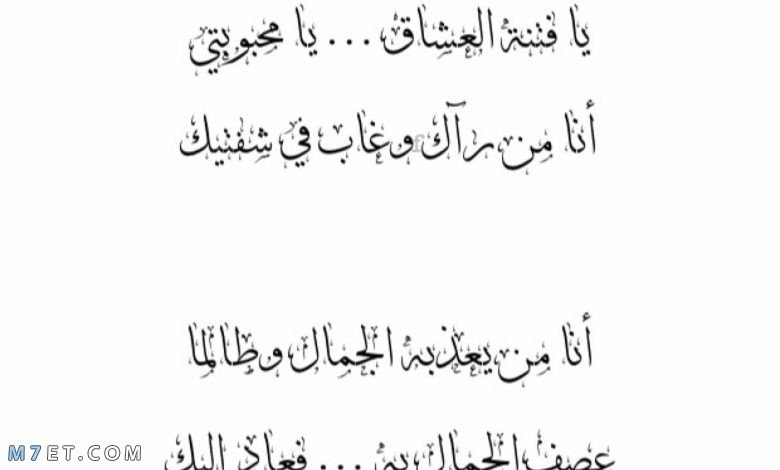 يا فتنة العشاق ... يا محبوبتي
أنا من رآك وغاب في شفتيك
أنا من يعذبه الجمال وطالما
عصف الجمال بي ... فعاد إليك
M7ET.COM